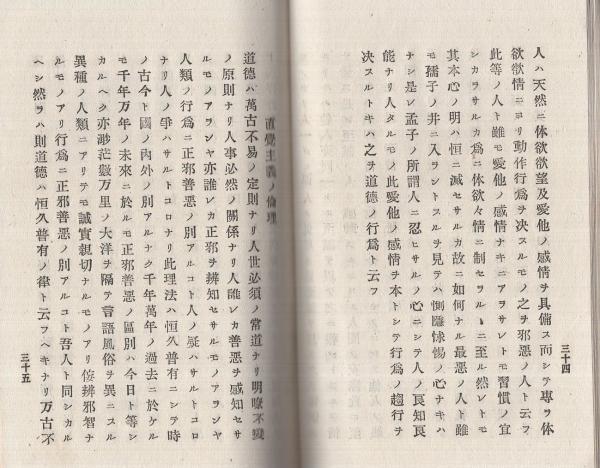 人ハ天然ニ体欲欲望及愛他ノ感情ヲ具備ス而シテ專ラ体
欲欲情ニヨリ動作行爲ヲ决スルモノ之ヲ邪惡ノ人ト云フ
此等ノ人ト雖モ愛他ノ感情ナキニアラサレトモ習慣ノ宜
シカラサルカ爲ニ体欲々情ニ制セラルヽニ至ル然レトモ
其本心ノ明ハ恒ニ滅セサルカ故ニ如何ナル最惡ノ人ト雖
モ孺子ノ井ニ入ラントスルヲ見テハ惻隱怵惕ノ心ナキハ
ナシ是レ孟子ノ所謂人ニ忍ヒサルノ心ニシテ人ノ良知良
能ナリ人タルモノ此愛他ノ感情ヲ本トシテ行爲ノ趨行ヲ
决スルトキハ之ヲ道德ノ行爲ト云フ
三十四
直覺主義ノ倫理
道德ハ萬古不易ノ定則ナリ人世必須ノ常道ナリ明暸不變
ノ原則ナリ人事必然ノ關係ナリ人誰レカ善惡ヲ感知セサ
ルモノアランヤ亦誰レカ正邪ヲ辨知セサルモノアランヤ
人類ノ行爲ニ正邪善惡ノ別アルコト人ノ疑ハサルトコロ
ナリ人ノ爭ハサルトコロナリ此理法ハ恒久普有ニシテ時
ノ古今ト國ノ内外ノ別アルナク千年萬年ノ過去ニ於ケル
モ千年万年ノ未來ニ於ルモ正邪善惡ノ區別ハ今日ト等シ
カルヘク亦渺茫數万里ノ大洋ヲ隔テ言語風俗ヲ異ニスル
異種ノ人類ニアリテモ誠實親切ナルモノアリ侫辨邪智ナ
ルモノアリ行爲ニ正邪善惡ノ別アルコト吾人ト同シカル
ヘシ然ラハ則道德ハ恒久普有ノ律ト云フヘキナリ万古不
三十五